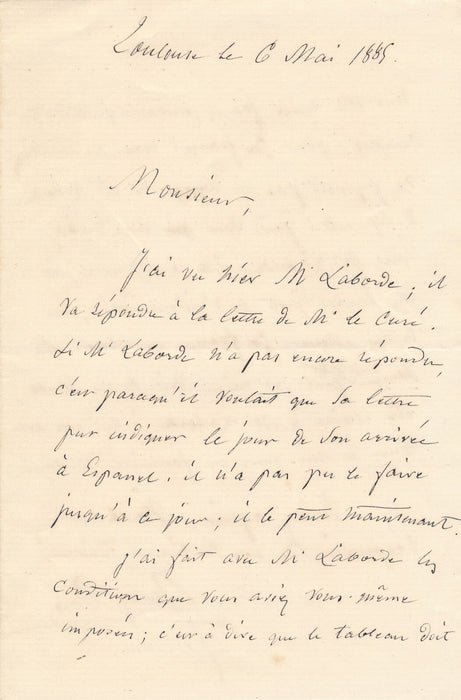 Toulouse le 6 Mai 1885.
Monsieur,
J'ai vu hier Mr Laborde ; il
va répondre à la lettre de Mr le Curé.
Si Mr Laborde n'a pas encore répondu,
c'est parcequ'il voulait que sa lettre
put indiquer le jour de son arrivée
à Espanel. il n'a pas pu le faire
jusqu'à ce jour ; il le peut maintenant.
J'ai fait avec Mr Laborde les
conditions que vous aviez vous-même
imposées ; c'est à dire que le tableau doit